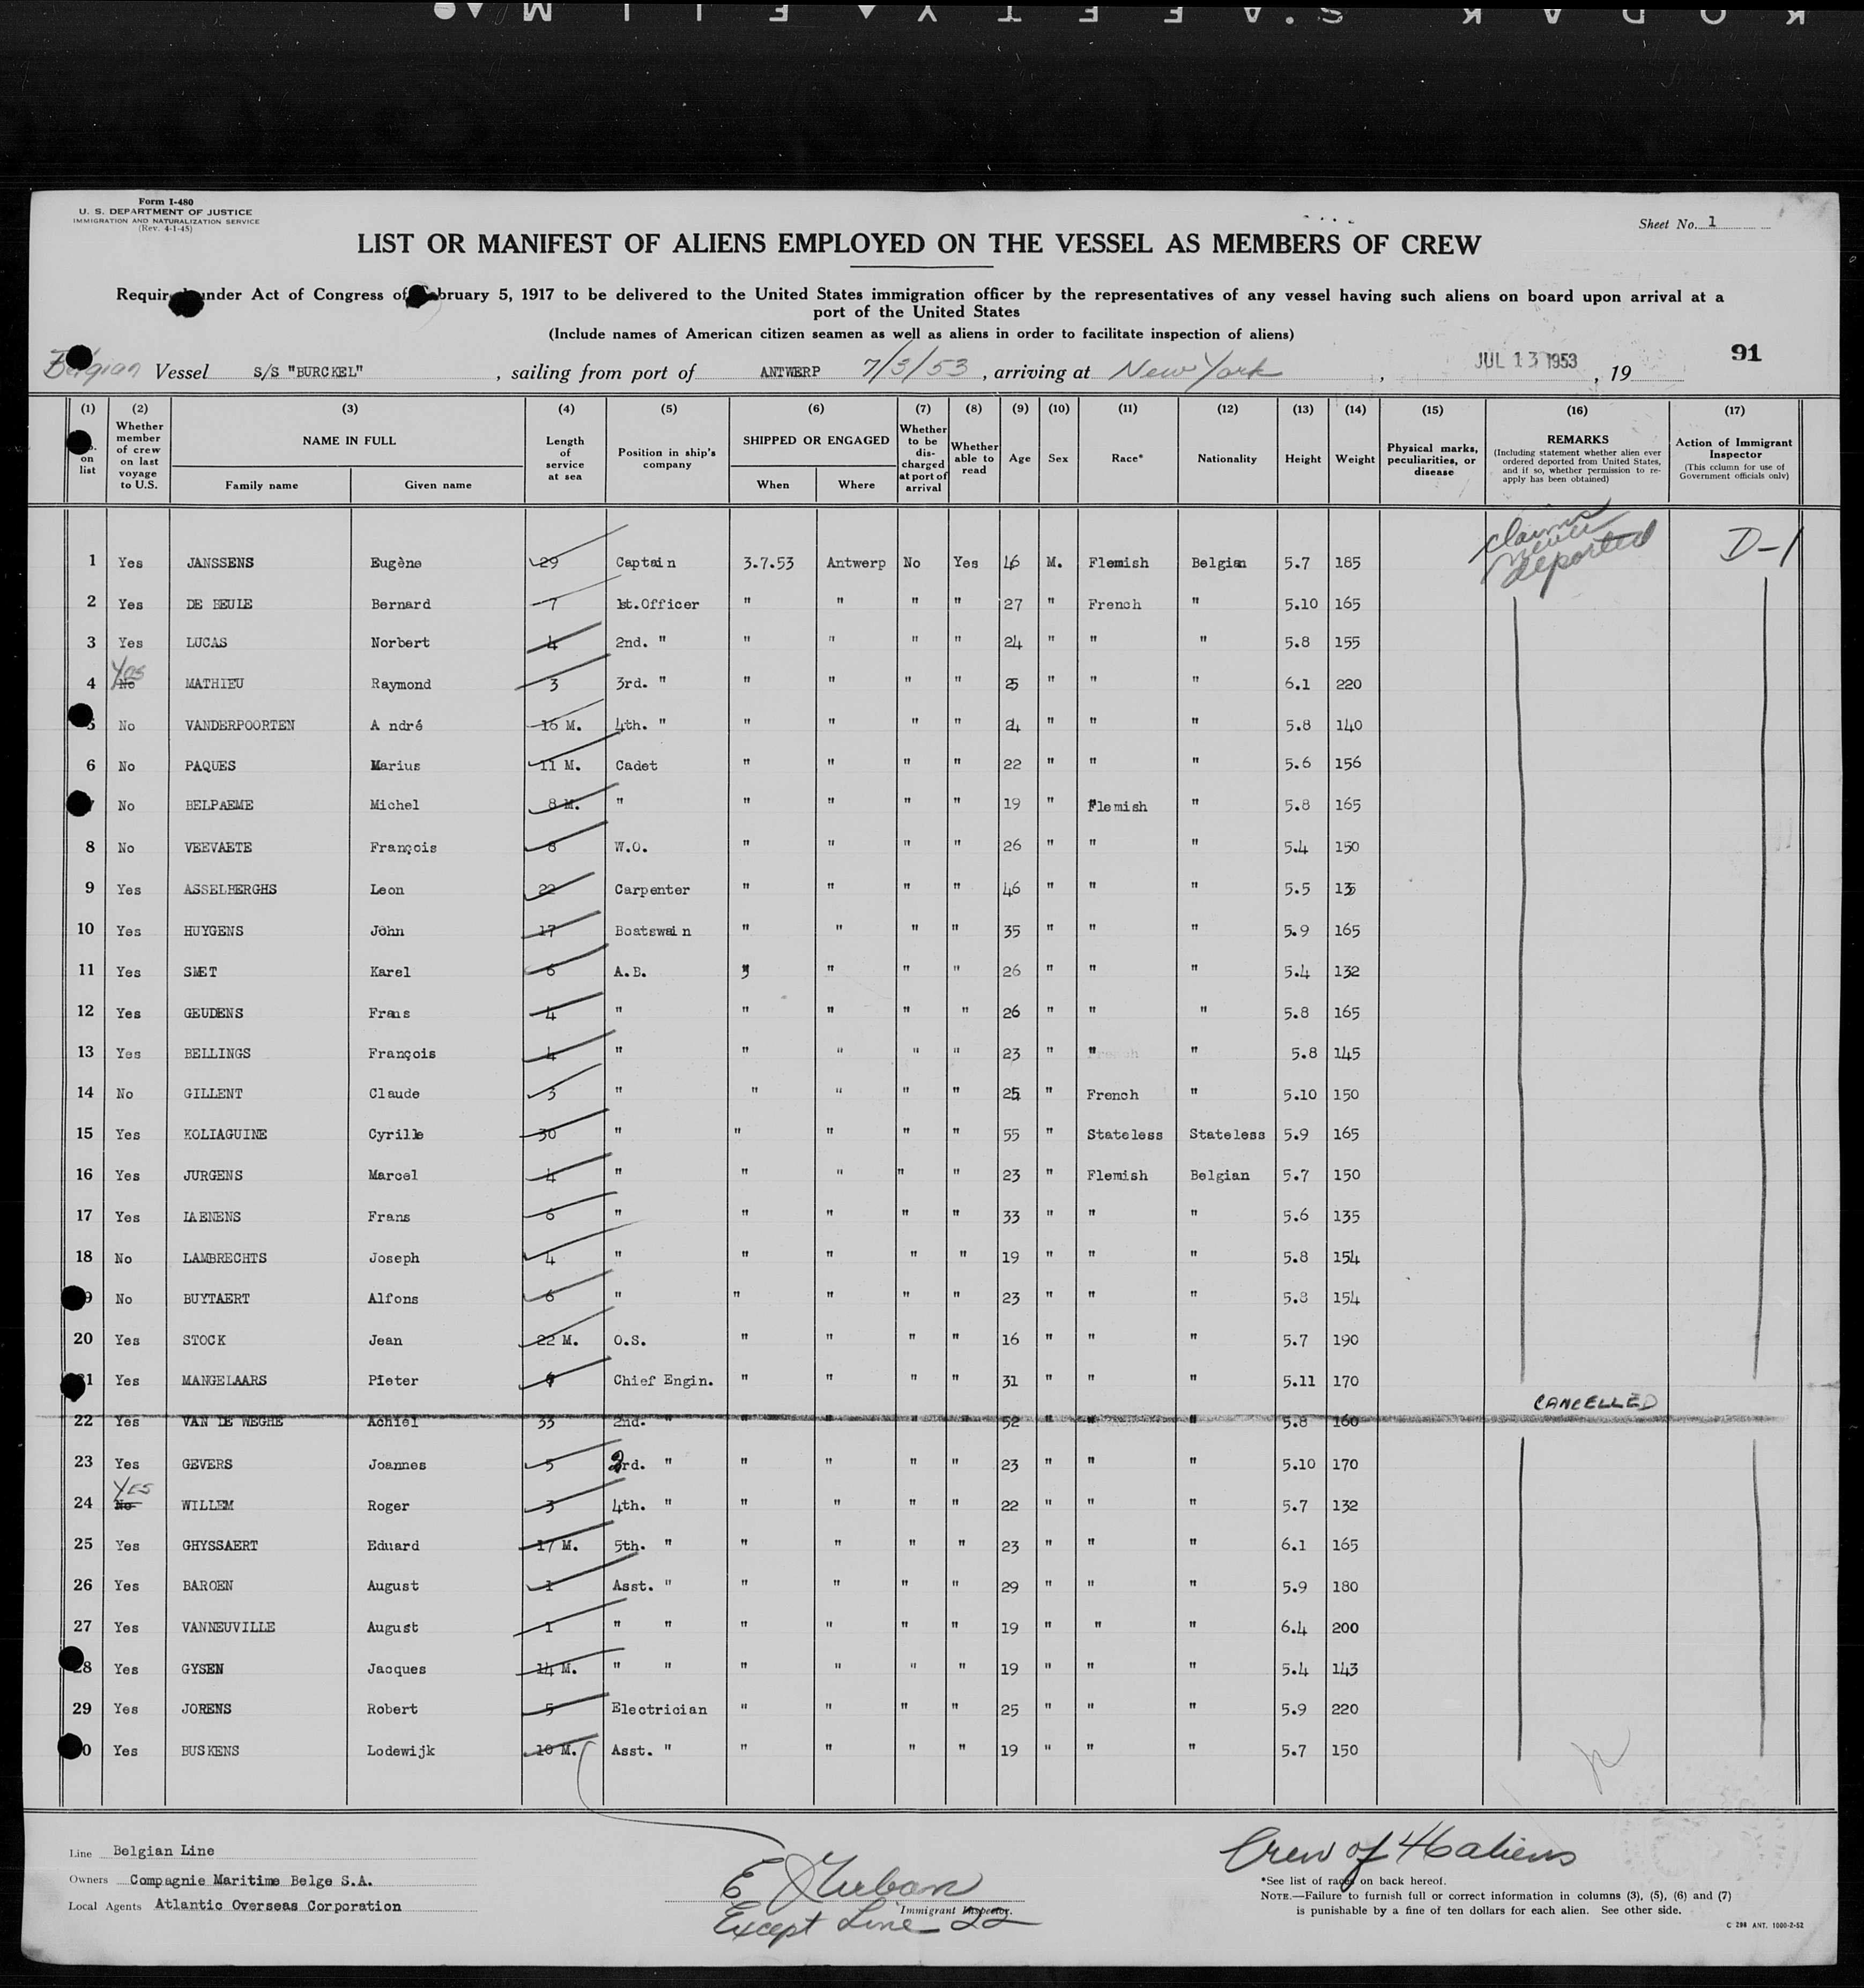 KODAK S.A.FETY ▲ FILM ▲●
Form I-480
U. S. DEPARTMENT OF JUSTICE
IMMIGRATION AND NATURALIZATION SERVICE
(Rev. 4-1-45)
Sheet No. 1
LIST OR MANIFEST OF ALIENS EMPLOYED ON THE VESSEL AS MEMBERS OF CREW
Requir under Act of Congress of bruary 5, 1917 to be delivered to the United States immigration officer by the representatives of any vessel having such aliens on board upon arrival at a
port of the United States
(Include names of American citizen seamen as well as aliens in order to facilitate inspection of aliens)
91
Belgian Vessel S/S "BURCKEL", sailing from port of ANTWERP 7/3/53, arriving at New York, JUL 13 1953, 19
(1) (2) (3) (4) (5) (6) (7) (8) (9) (10) (11) (12) (13) (14) (15) (16) (17)
on list Whether member of crew on last voyage to U.S. NAME IN FULL Family name Given name Length of service at sea Position in ship's company SHIPPED OR ENGAGED When Where Whether to be discharged at port of arrival Whether able to read Age Sex Race* Nationality Height Weight Physical marks, peculiarities, or disease REMARKS (Including statement whether alien ever ordered deported from United States, and if so, whether permission to reapply has been obtained) Action of Immigrant Inspector (This column for use of Government officials only)
claims never deported D-1
1 Yes JANSSENS Eugène 29 Captain 3.7.53 Antwerp No Yes 46 M. Flemish Belgian 5.7 185
2 Yes DE BEULE Bernard 7 1st.Officer " " " " 27 " French " 5.10 165
3 Yes LUCAS Norbert 4 2nd. " " " " " 24 " " " 5.8 155
4 No Yes MATHIEU Raymond 3 3rd. " " " " " 25 " " " 6.1 220
5 No VANDERPOORTEN A ndré 16 M. 4th. " " " " " 24 " " " 5.8 140
6 No PAQUES Marius 11 M. Cadet " " " " 22 " " " 5.6 156
7 No BELPAEME Michel 8 M. " " " " " 19 " Flemish " 5.8 165
8 No VEEVAETE François 8 W.O. " " " " 26 " " " 5.4 150
9 Yes ASSELBERGHS Leon 22 Carpenter " " " " 46 " " " 5.5 135
10 Yes HUYGENS John 17 Boatswain " " " " 35 " " " 5.9 165
11 Yes SMET Karel 6 A.B. " " " " 26 " " " 5.4 132
12 Yes GEUDENS Frans 4 " " " " " 26 " " " 5.8 165
13 Yes BELLINGS François 4 " " " " " 23 " " " 5.8 145
14 No GILLENT Claude 3 " " " " " 25 " French " 5.10 150
15 Yes KOLIAGUINE Cyrille 30 " " " " " 55 " Stateless Stateless 5.9 165
16 Yes JURGENS Marcel 4 " " " " " 23 " Flemish Belgian 5.7 150
17 Yes LAENENS Frans 6 " " " " " 33 " " " 5.6 135
18 No LAMBRECHTS Joseph 4 " " " " " 19 " " " 5.8 154
9 No BUYTAERT Alfons 6 " " " " " 23 " " " 5.8 154
20 Yes STOCK Jean 22 M. O.S. " " " " 16 " " " 5.7 190
21 Yes MANGELAARS Pieter Chief Engin. " " " " 31 " " " 5.11 170
22 Yes VAN DE WEGHE Achiel 33 2nd. " " " " " 52 " " " 5.8 160 CANCELLED
23 Yes GEVERS Joannes 5 rd. " " " " " 23 " " " 5.10 170
24 No YES WILLEM Roger 3 4th. " " " " " 22 " " " 5.7 132
25 Yes GHYSSAERT Eduard 17 M. 5th. " " " " " 23 " " " 6.1 165
26 Yes BAROEN August 1 Asst. " " " " " 29 " " " 5.9 180
27 Yes VANNEUVILLE August 1 " " " " " " 19 " " " 6.4 200
28 Yes GYSEN Jacques 14 M. " " " " " " 19 " " " 5.4 143
29 Yes JORENS Robert 5 Electrician " " " " 25 " " " 5.9 220
0 Yes BUSKENS Lodewijk 10 M. Asst. " " " " " 19 " " " 5.7 150
Line Belgian Line
Owners Compagnie Maritime Belge S.A.
Local Agents Atlantic Overseas Corporation
Immigrant Inspector.
Except Line 22
Crew of 46 aliens
*See list of races on back hereof.
NOTE.—Failure to furnish full or correct information in columns (3), (5), (6) and (7)
is punishable by a fine of ten dollars for each alien. See other side.
C 298 ANT. 1000-2-52